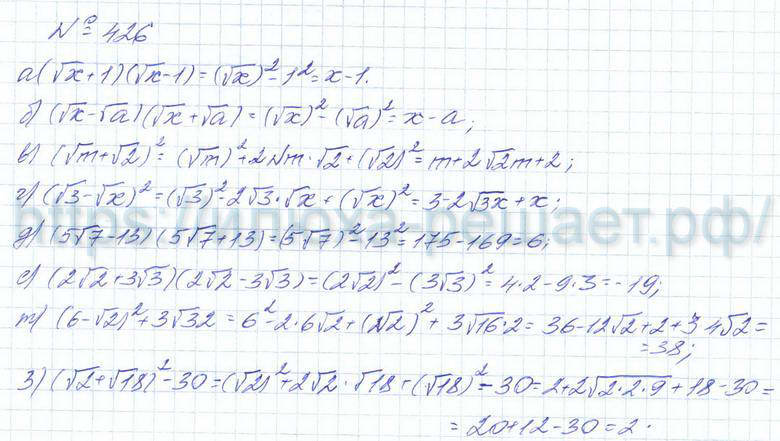 № 426
а(√x+1)(√x-1)=(√x)²-1²=x-1.
б)(√x-√a)(√x+√a)=(√x)²-(√a)²=x-a;
в) (√m+√2)²=(√m)²+2√m·√2+(√2)²=m+2√2m+2;
г)(√3-√x)²=(√3)²-2√3·√x+(√x)²=3-2√3x+x;
https://илюха-решает.рф/
д)(5√7-13)(5√7+13)=(5√7)²-13²=175-169=6;
е)(2√2+3√3)(2√2-3√3)=(2√2)²-(3√3)²=4·2-9·3=-19;
ж) (6-√2)²+3√32=6²-2·6√2+(√2)²+3√16·2=36-12√2+2+3·4√2=
=38;
з)(√2+√18)²-30=(√2)²+2√2·√18+(√18)²-30=2+2√2·2·9+18-30=
=20+12-30=2.